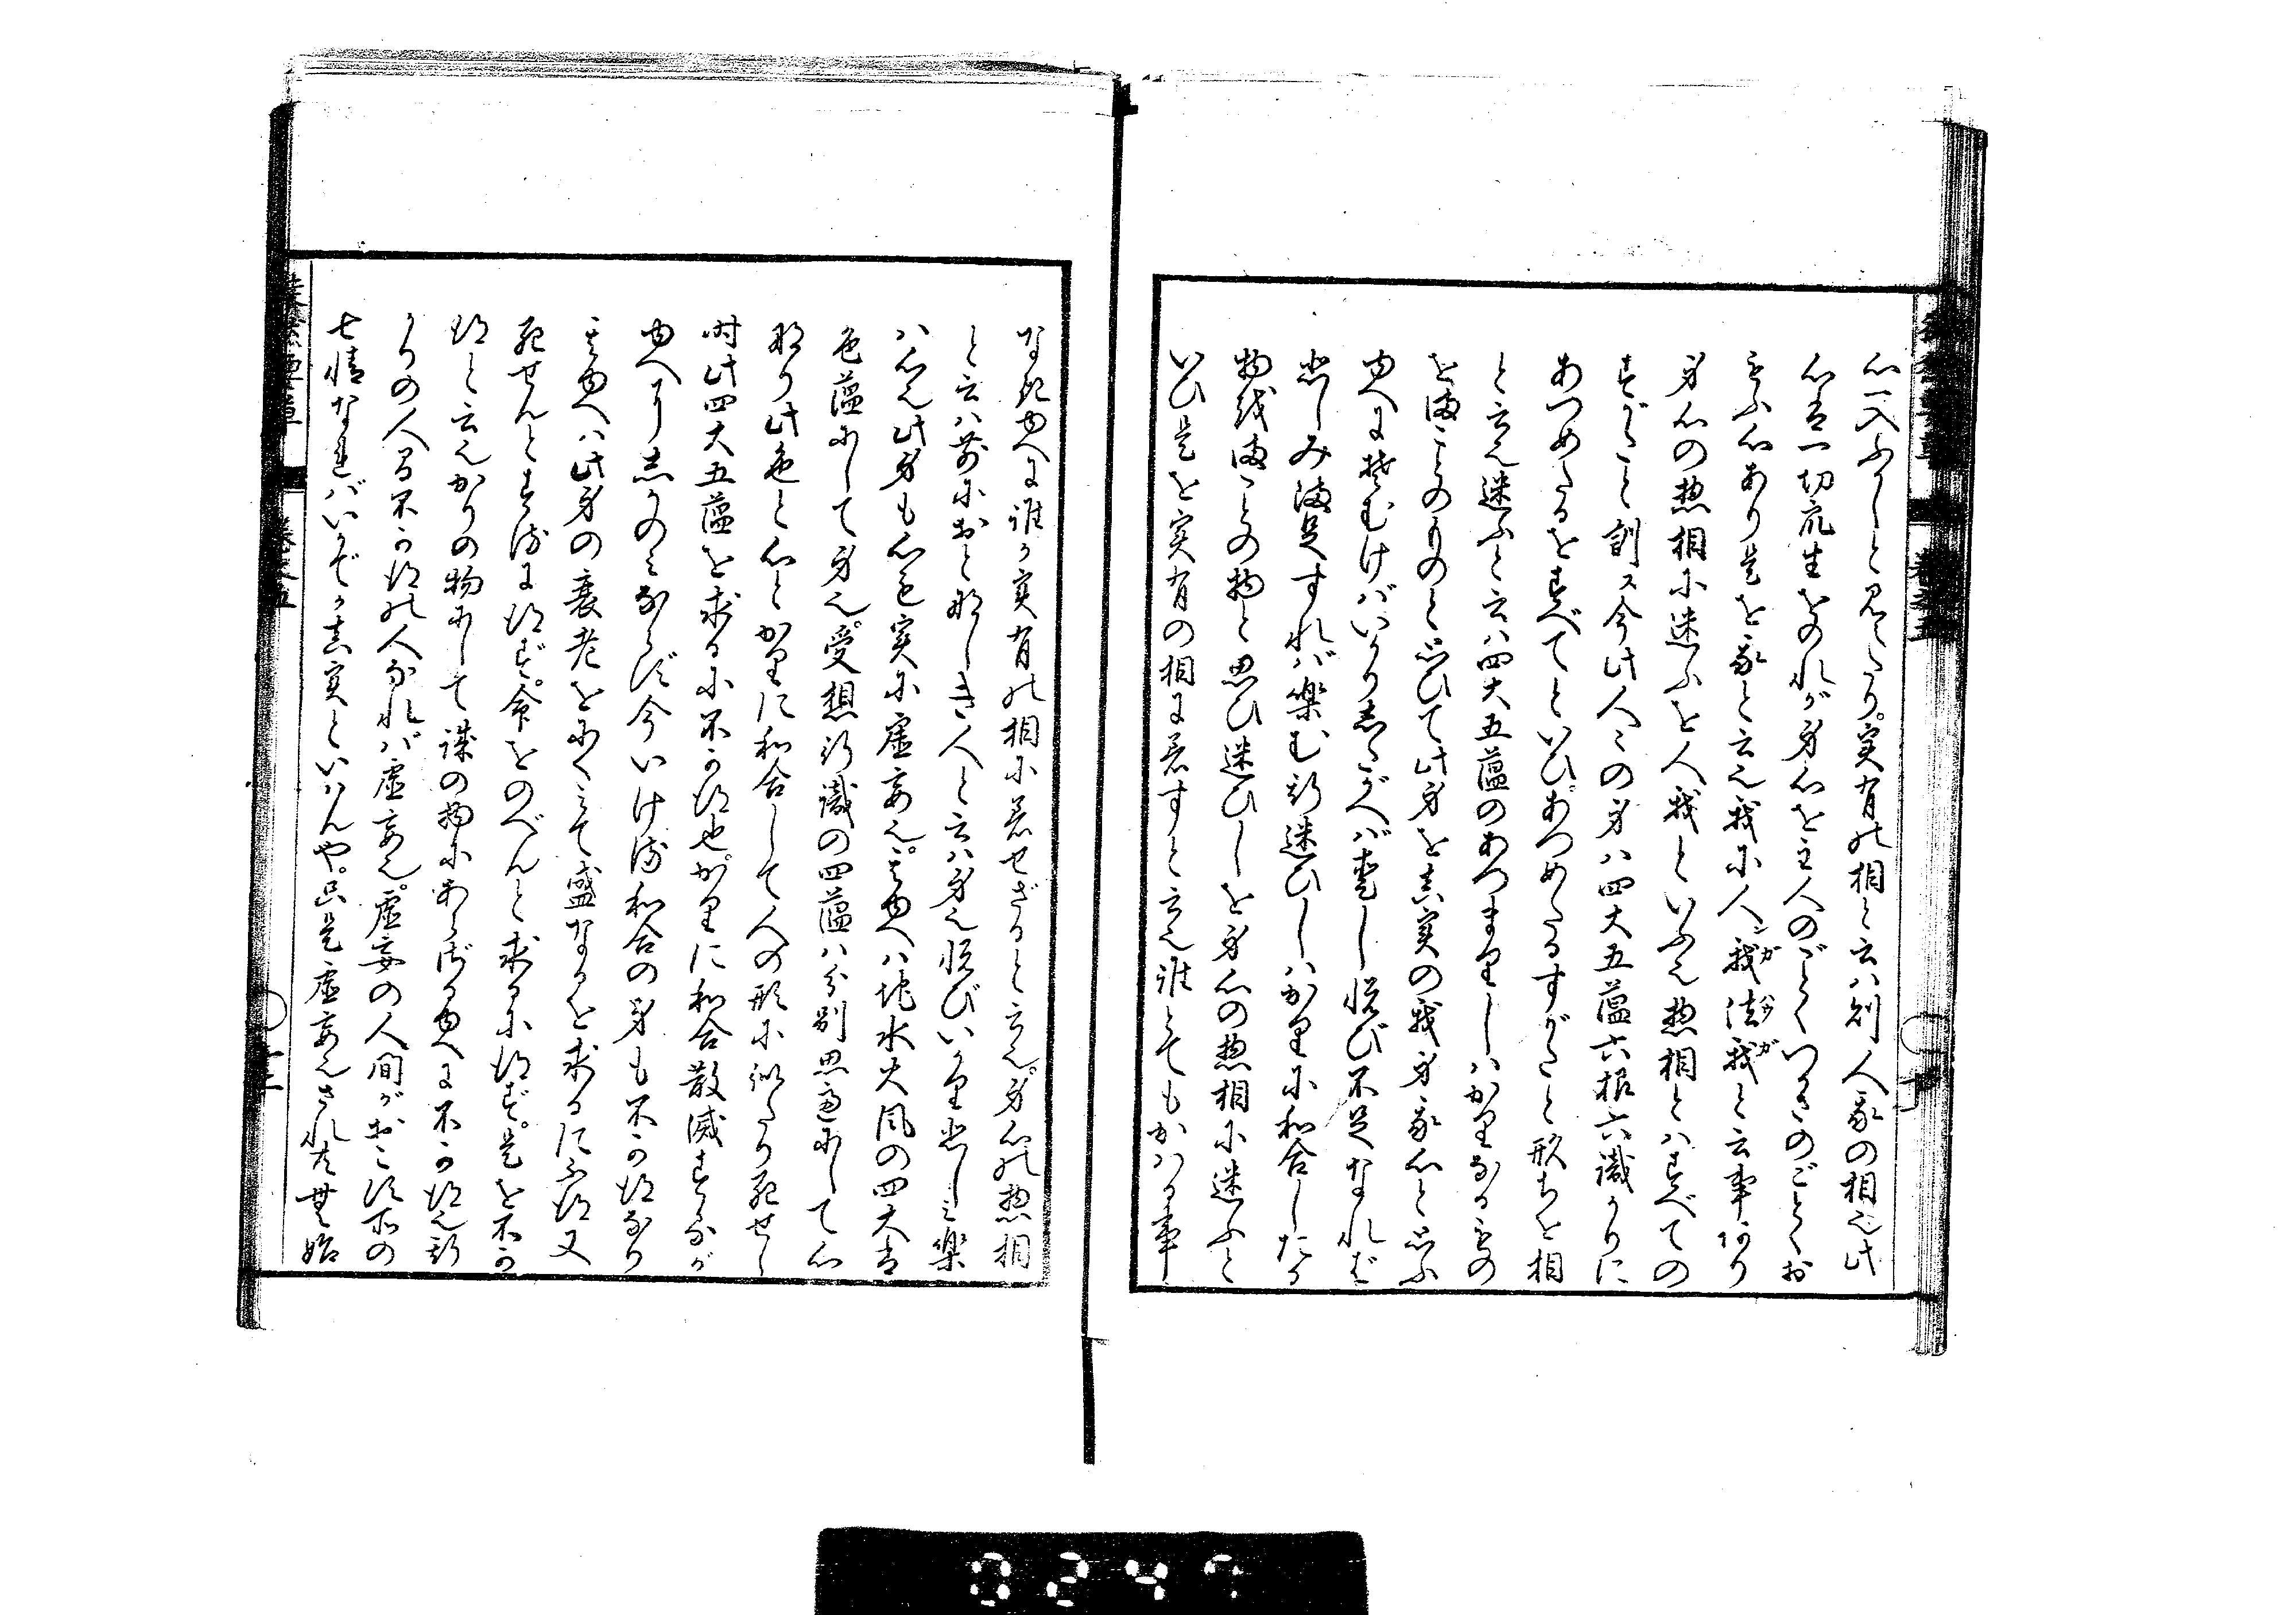 心一入ふかしと見へたり。実有の相と云ハ則人我の相也此
心ハ一切衆生をのれが身心を主人のごとくいつきのごとくお
もふ心あり是を我と云也我に人我法我と云事あり
身心の惣相に迷ふを人我といふ也惣相とハすべての
すがたと訓ス今此人〻の身ハ四大五蘊六根六識かりに
あつめたるをすべてといひ。あつめたるすがたと形ちを相
と云也迷ふと云ハ四大五蘊のあつまりしハかりなるもの
をまことのものと思ひて此身を真実の我身我心と思ふ
ゆへにそむけばいかりしたがへば愛し悦び不足なれば
悲しみ満足すれば楽む斯迷ひしハかりに和合したる
物をまことの物と思ひ迷ひしを身心の惣相に迷ふと
いひ是を実有の相に着すと云也誰とてもかハる事
なきゆへに誰か実有の相に着せざると云也。身心の惣相
と云ハ前におとなしき人と云ハ身也悦びいかり悲しみ楽
ハ心也此身も心も実に虚妄也。其ゆへハ地水火風の四大ハ
色蘊にして身也。受想行識の四蘊ハ分別思慮にして心
なり此色と心とかりに和合して人の形に似たり死せし
時此四大五蘊を求るに不可得也。かりに和合散滅するが
ゆへ也しかのみならず今いける和合の身も不可得なり
其ゆへハ此身の衰老をにくみて盛なるを求るに不得又
死せんとするに得ず。命をのべんと求るに得ず。是を不可
得と云也かりの物にして誠の物にあらざるゆへに不可得也斯
かりの人る不可得の人なれバ虚妄也。虚妄の人間がおこす所の
七情なればいかでか真実といはんや。只是虚妄也されども無始